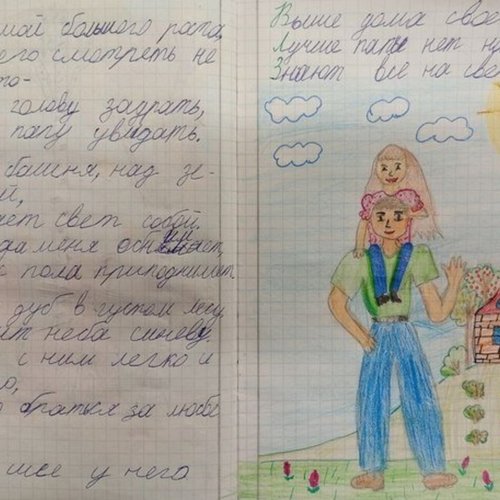 мой большого роста,
его смотреть не
то-
голову задрать,
папу увидать.
башня, над зе-
й,
ает свет собой.
да меня обнимает,
с пола приподнимает
дуб в густом лесу,
ит неба синеву.
с ним легко и
о,
о браться за любо
шее у него
Выше дома свое
Лучше папы нет н
Знают все на све